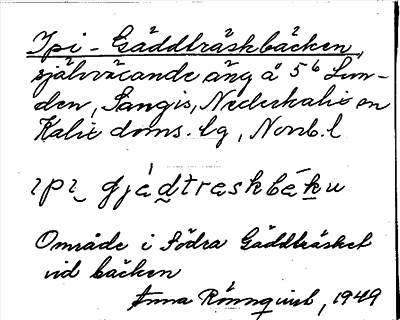 Ipi - Gäddträskbäcken,
självväxande äng å 5⁶ Lun-
den, Sangis, Nederkalix sn
Kalix doms. lg, Norrb. l
ıpı gjädtraskbäkn
Område i Södra Gäddträsket
vid bäcken
Anna Rönnquist, 1949